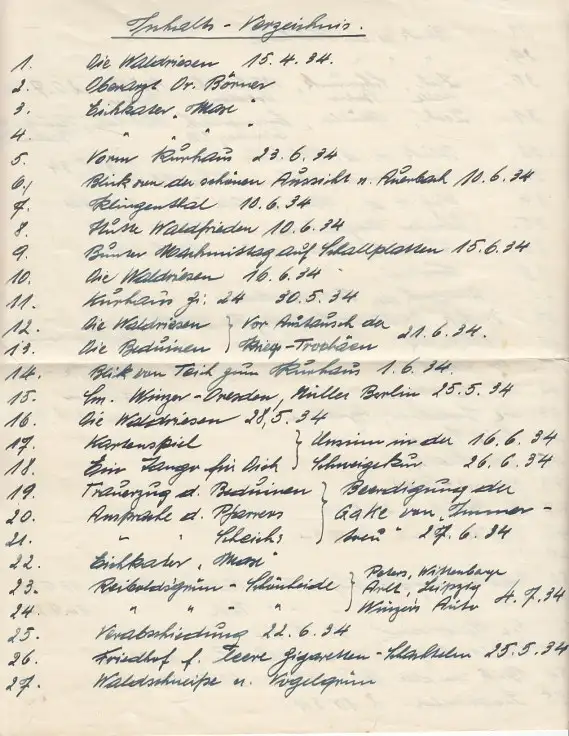 Inhalts-Verzeichnis.
1. Die Waldriesen 15.4.34.
2. Oberarzt Dr. Börner
3. Eichkater „Maxe"
4. " " "
5. Vorm Kurhaus 23.6.34
6.) Blick von der schönen Aussicht n. Auerbach 10.6.34
7. Klingenthal 10.6.34
8. Hütte Waldfrieden 10.6.34
9. Bunter Nachmittag auf Schallplatten 15.6.34
10. Die Waldriesen 16.6.34
11. Kurhaus Zi: 24 30.5.34
12. Die Waldriesen } Vor Austausch der
13. Die Beduinen } -Trophäen 21.6.34.
14. Blick vom Teich zum Kurhaus 1.6.34.
15. Winzer-Dresden, Müller Berlin 25.5.34
16. Die Waldriesen 28.5.34
17. Kartenspiel } Unsinn in der 16.6.34
18. Ein Tango für Dich } Schweigekur 26.6.34
19. Trauerzug d. Beduinen } Beerdigung der
20. Ansprache d. Pfarrers } von „Immer-
21. " " Scheich: } treu" 27.6.34
22. Eichkater „Maxe"
23. Reiboldsgrün - Schönheide } Peters, Wittenberge
Leipzig
24. " " " " } Winzers Auto 4.7.34
25. Verabschiedung 22.6.34
26. Friedhof f. leere Zigaretten-Schachteln 25.5.34
27. Waldschneise n. Vogelsgrün